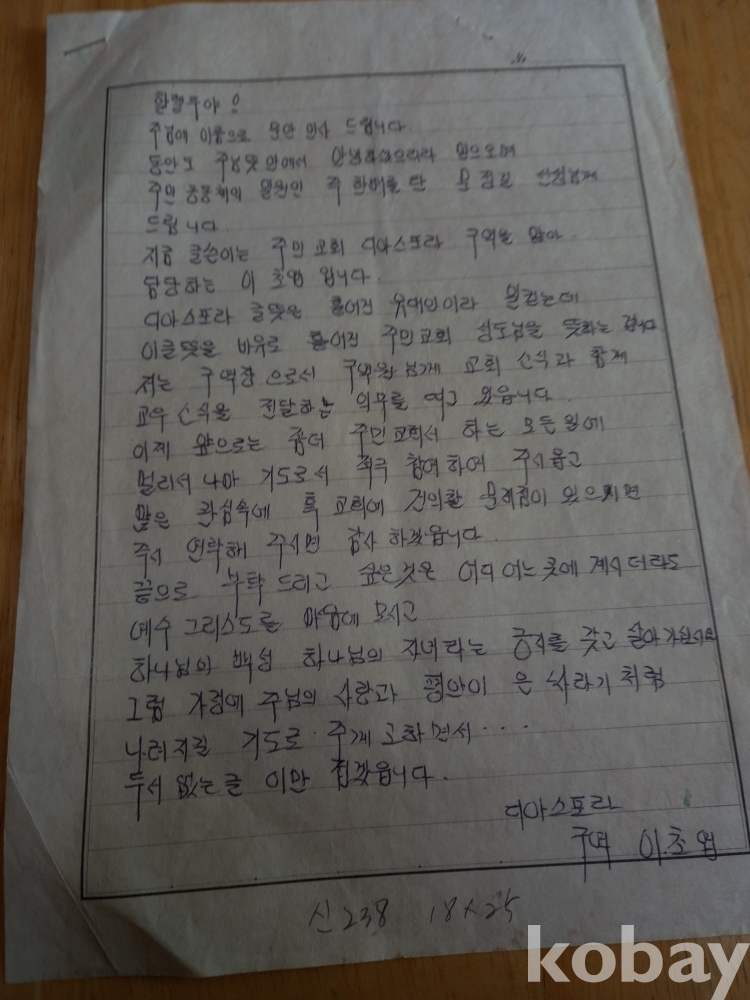 할렐루야!
주님에 이름으로 문안 인사 드립니다.
동안도 주님 뜻 안에서 안녕하셨으리라 믿으오며
주민 공동체의 일원인 주 한배를 탄 선생님께
드립니다.
지금 글쓴이는 주민교회 디아스포라 구역을 맡아
담당하는 이초엽 입니다.
디아스포라 글뜻은 흩어진 유대인이라 일컫는데
이글뜻을 바우로 흩어진 주민교회 성도님을 뜻하는 겁니다
저는 구역장으로서 구역원님게 교회 소식과 함게
교우 소식을 전달하는 의무를 여고 있읍니다.
이제 앞으로는 좀더 주민교회서 하는 모든일에
멀리서 나마 기도로서 적극 참여하여 주시옵고
많은 관심속에 혹 교회에 건의할 문제점이 있으시면
주시 연락해 주시면 감사 하겠읍니다.
끝으로 부탁 드리고 싶은것은 어디 어느곳에 계시더라도
예수 그리스도를 마음에 모시고
하나님의 백성 하나님의 자녀라는 긍지를 갖고 살아가십시요
그럼 가정에 주님의 사랑과 평안이 은 싸라기 처럼
나려지길 기도로 주게 고하면서 · · ·
두서 없는글 이만 접겠읍니다.
디아스포라
구역 이초엽
신238 18×25
kobay